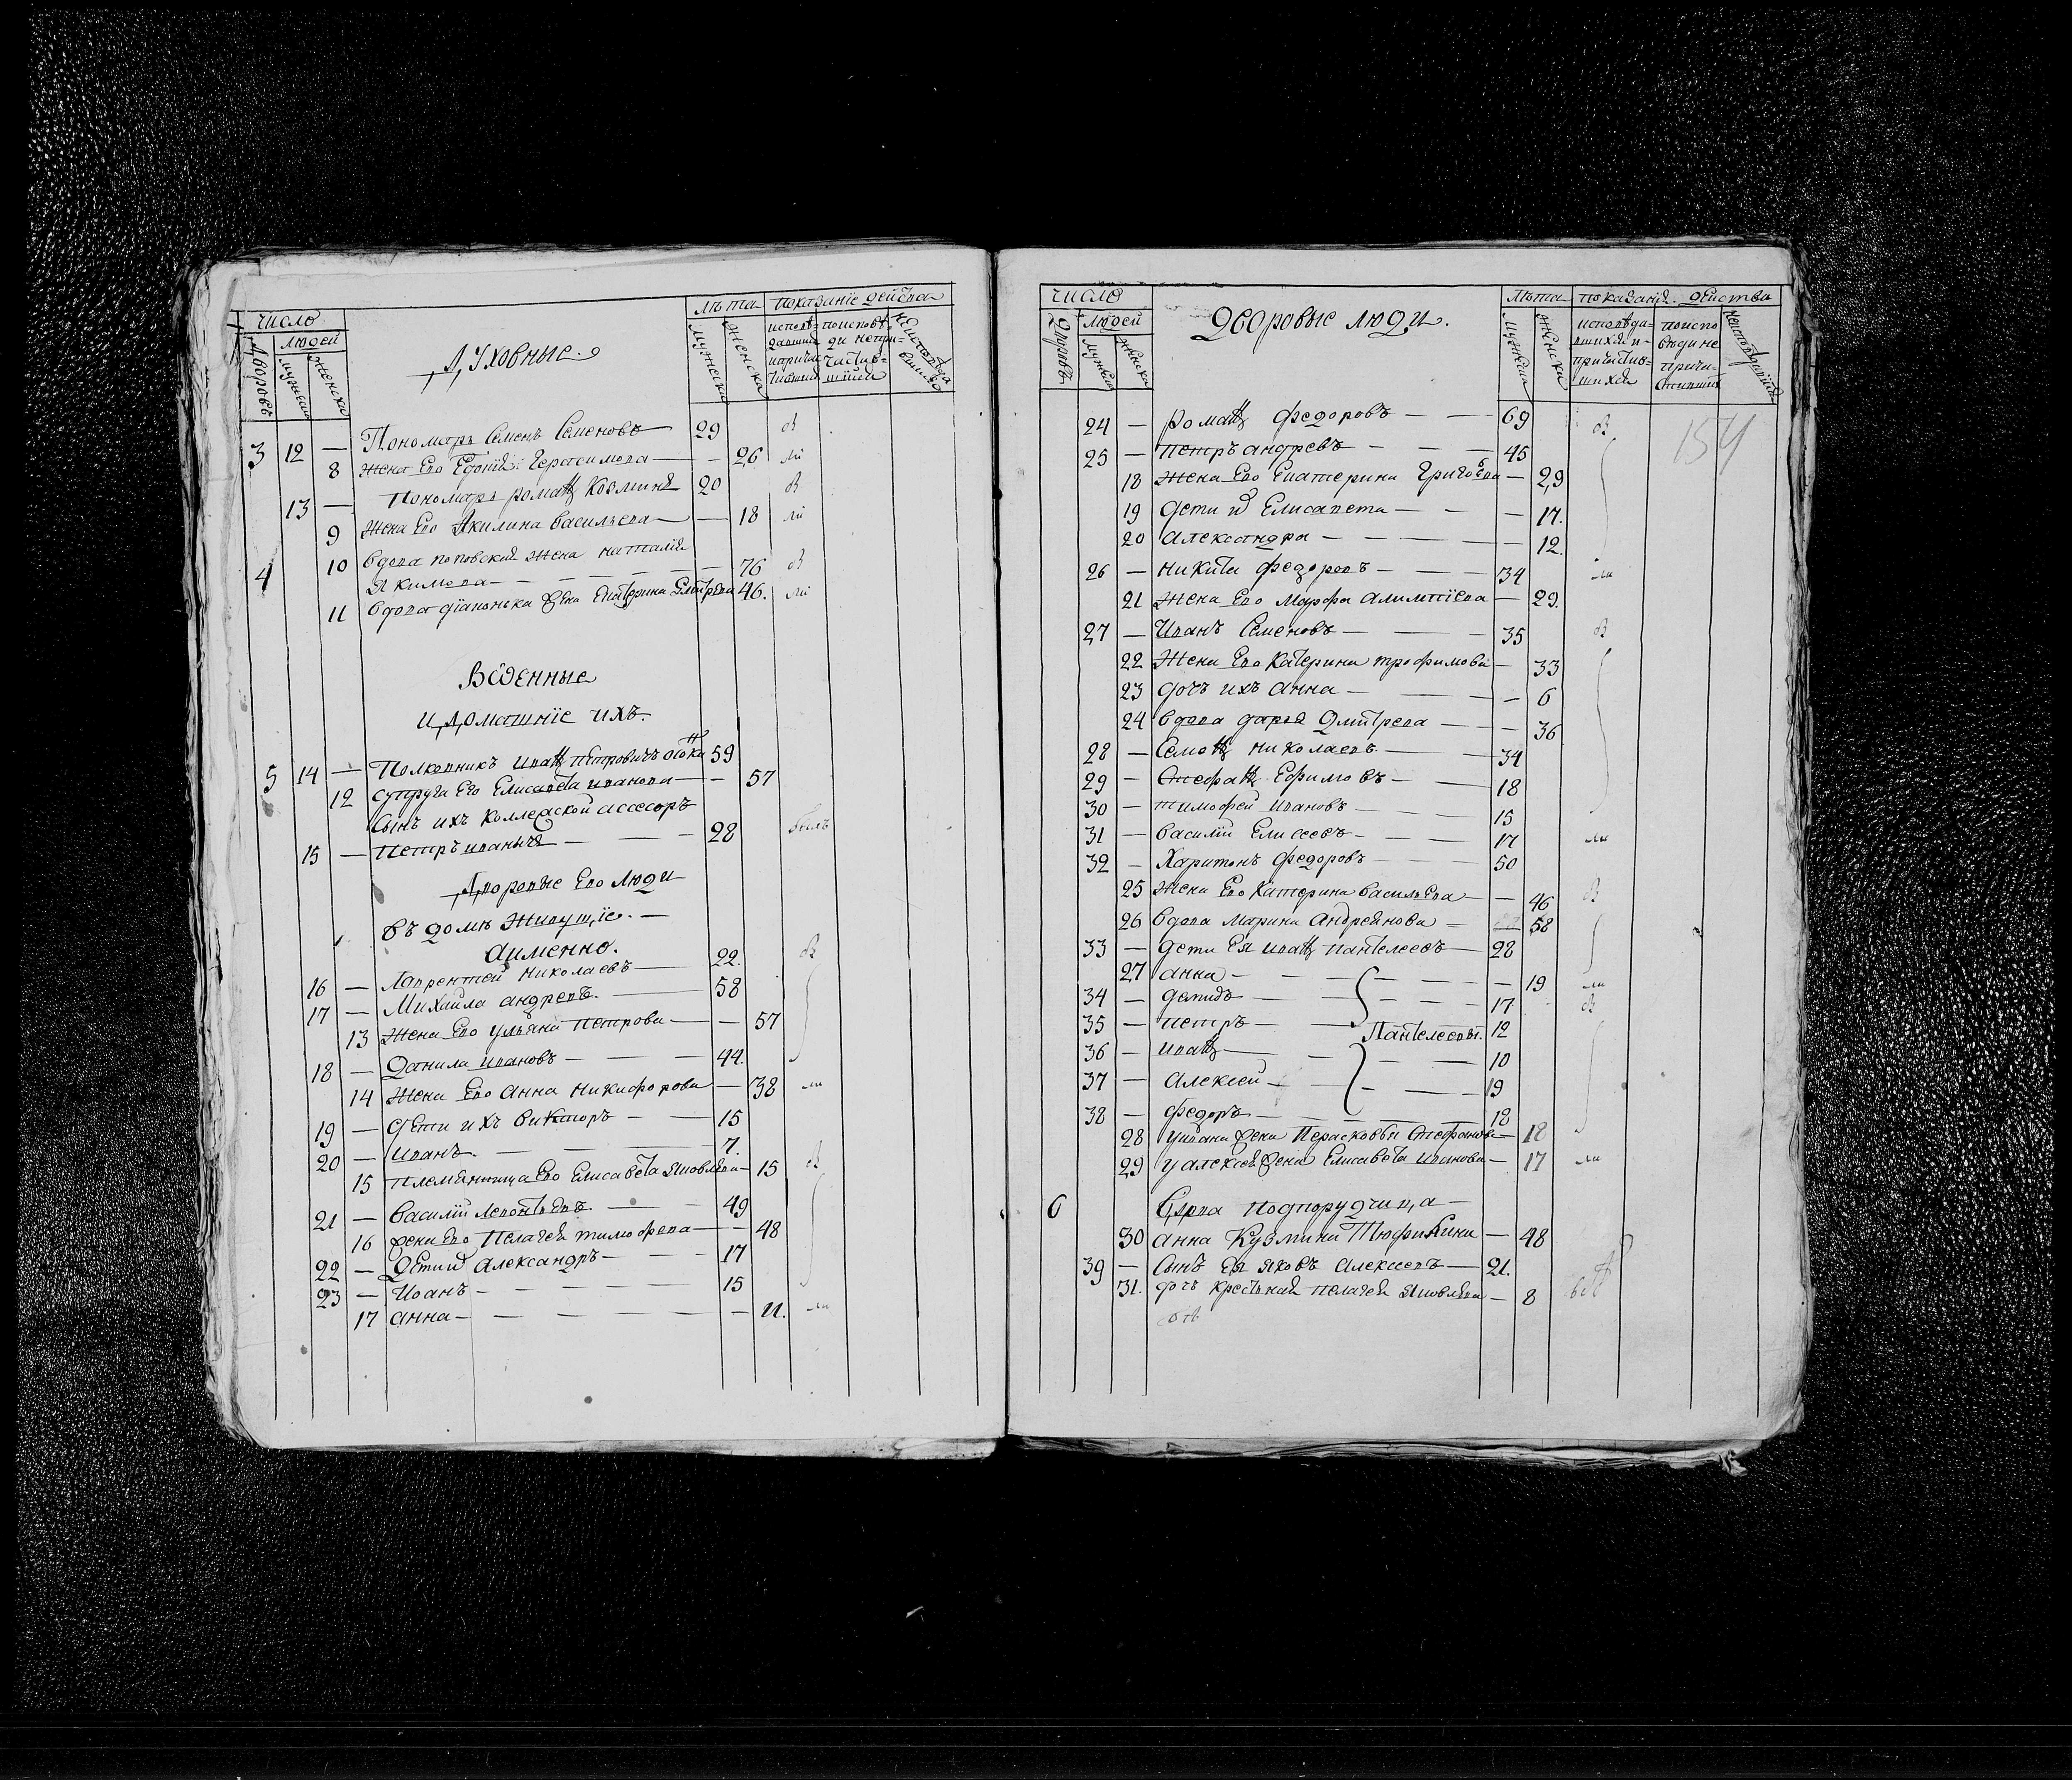 число
Духовные.
лѣта
показанiе действа
Дворовъ
людей
мужеска
женска
мужеска
женска
3 12 — Пономарь Семенъ Семеновъ — 29
8 жена Его Герасимова — 26
13 — Пономарь романъ Козминъ 20
9 жена Его Акилина васильева — 18
10 вдова поповская жена наталiя
4 Якимова — 76
11 вдова дiаконька жена Екатерина Дмитрева 46.
Военные
и домашнiе ихъ.
5 14 — Полковникъ иванъ петровичъ 59
12 супруга Его Елисавета иванова — 57
сынъ ихъ коллежской ассесоръ
15 — Петръ иванычъ — 28 былъ
Дворовые Его люди
въ домѣ живущiе. —
аименно.
16 — Лаврентей николаевъ — 22.
17 — Михайла андревъ. — 58
13 Жена Его ульяна петрова — 57
18 — Данила ивановъ — 44.
14 Жена Его Анна никифорова — 38
19 — дети ихъ викторъ — 15
20 — иванъ. — 7.
15 племянница Его Елисавета яковлева — 15
21 — василiй леонтьевъ — 49
16 жена Его Пелагея тимофева — 48
22 — Дети их Александръ — 17
23 — Иоанъ — 15
17 анна — 11.
число
Дворовые люди.
лѣта
показанiя действа
людей
мужеска
женска
исповѣда-
вшихся и
причастив-
шихся
поиспо
вѣди не
причи-
154
24 — романъ федоровъ — 69
25 — петръ андревъ — 45
18 жена Его Екатерина Григорева — 29
19 дети их Елисавета — 17.
20 александра — 12.
26 — никита федоровъ — 34
21 жена Его марфа алимпiева — 29.
27 — Иванъ Семеновъ — 35
22 Жена Его катерина трофимова — 33
23 дочь ихъ анна — 6
24 вдова дарья Дмитрева — 36
28 — Семонъ николаевъ — 34
29 — Стефанъ Ефимовъ — 18
30 — тимофей ивановъ — 15
31 — василiй Елисеевъ — 17
32 — Харитонъ федоровъ — 50
25 жена Его катерина васильева — 46
26 вдова марина Андреянова — 58
33 — дети Ея иванъ пантелеевъ — 28
27 анна — 19
34 — давидъ — 17
35 — петръ — 12
Пантелеевы.
36 — иванъ — 10
37 — Алексей — 19
38 — федоръ — 18
28 уивана жена Парасковья Стефанова — 18
29 уалексея жена Елисавета иванова — 17
6 Вдова подпоручица —
30 анна Кузмина Тюфикина — 48
39 — Сынъ Ея яковъ Алексеевъ — 21.
31. дочь крестьная пелагея яковлева — 8